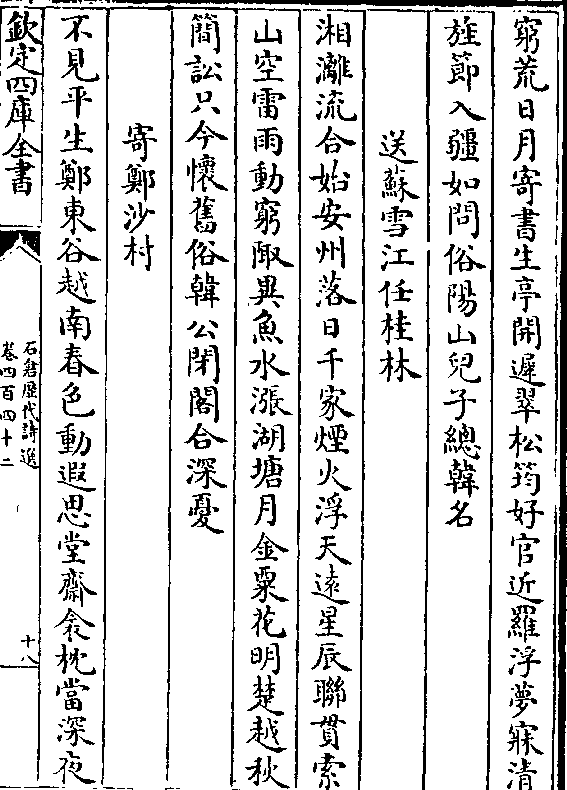 窮荒日月寄書生亭開遲翠松筠好官近羅浮夢寐清
旌節入疆如問俗陽山兒子總韓名
送蘇雪江任桂林
湘灕流合始安州落日千家煙火浮天遠星辰聯貫索
山空雷雨動窮陬異魚水漲湖塘月金粟花明楚越秋
簡訟只今懷舊俗韓公閉閣合深憂
寄鄭沙村
不見平生鄭東谷越南春色動遐思堂齋衾枕當深夜
欽定四庫全書
石倉歷代詩選
卷四百四十二
十八